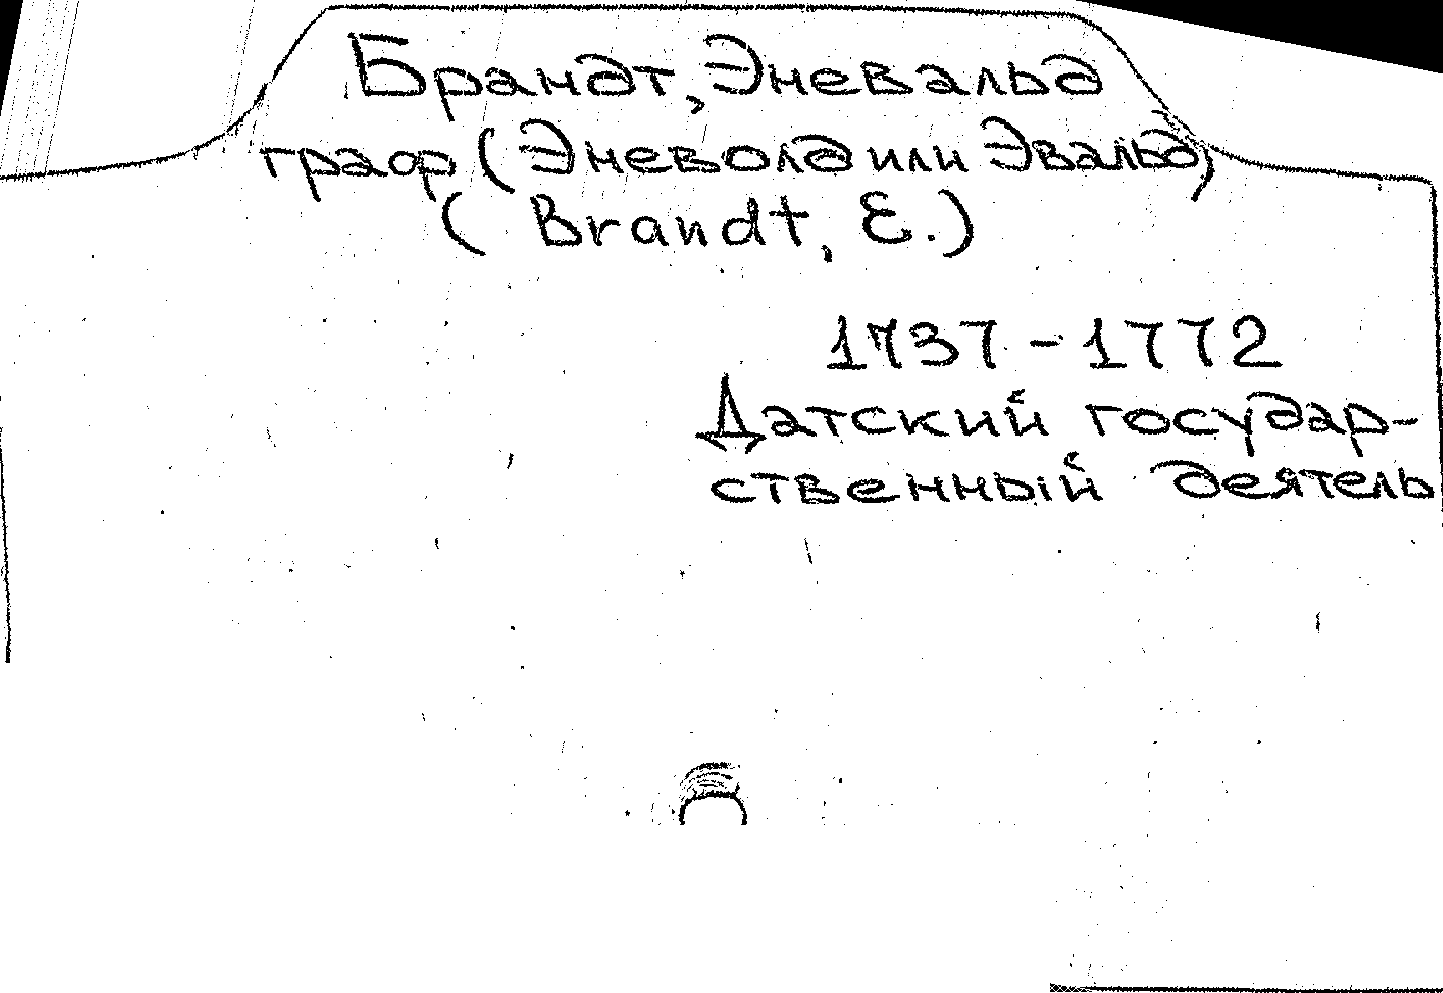 Брандт, Эневальд
граф (Эневолд или Эвальд)
( Brandt, E.)
1737-1772
Датский государ-
ственный деятель